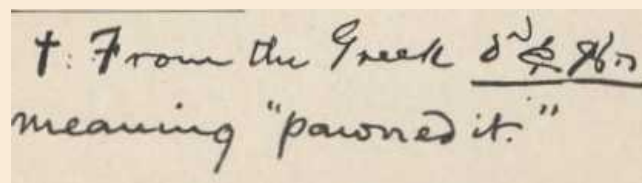 †: From the Greek
meaning "pawned it."